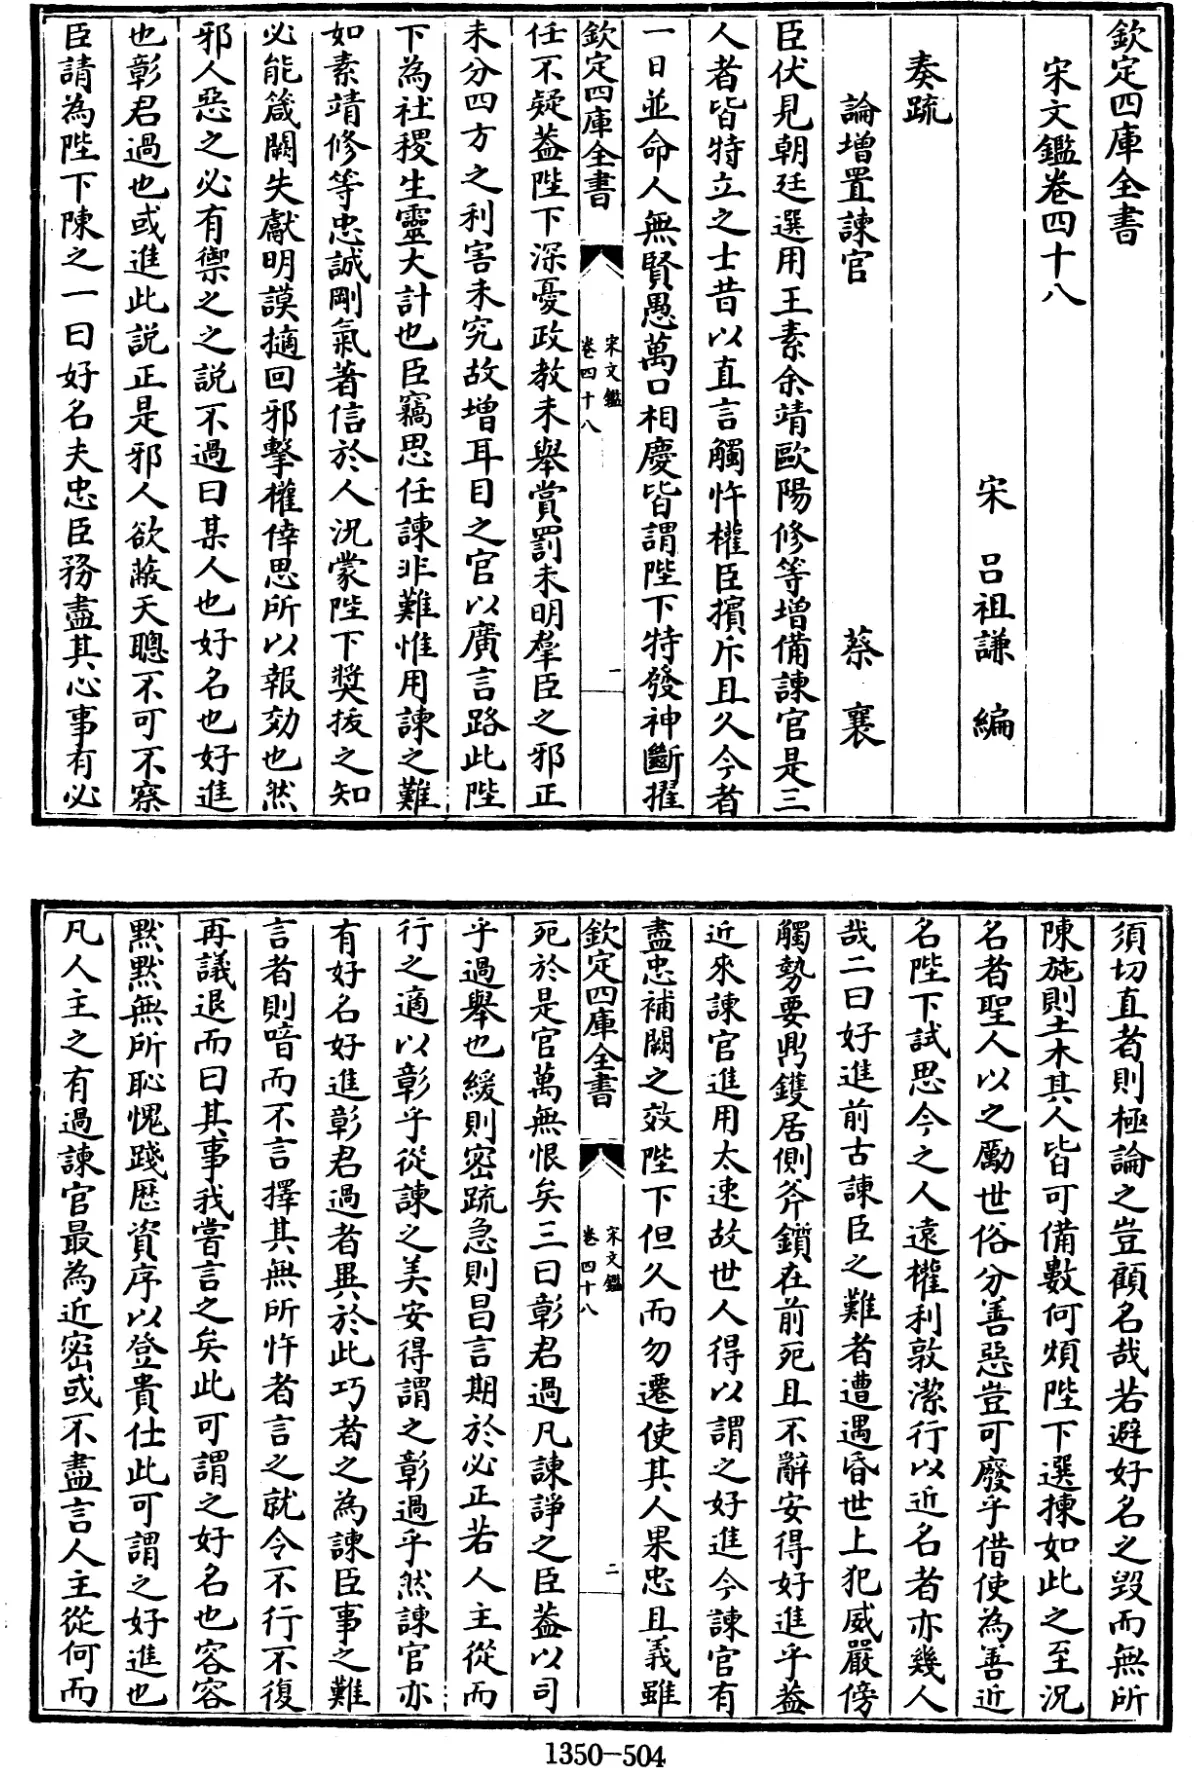 欽定四庫全書
宋文鑑卷四十八
宋　呂祖謙　編
奏疏
論增置諫官　蔡襄
臣伏見朝廷選用王素余靖歐陽修等增備諫官是三
人者皆特立之士昔以直言觸忤權臣擯斥且久今者
一日並命人無賢愚萬口相慶皆謂陛下特發神斷擢
欽定四庫全書　宋文鑑卷四十八　一
任不疑蓋陛下深憂政教未舉賞罰未明羣臣之邪正
未分四方之利害未究故增耳目之官以廣言路此陛
下為社稷生靈大計也臣竊思任諫非難惟用諫之難
如素靖修等忠誠剛氣著信於人況蒙陛下奬拔之知
必能箴闕失獻明謨擿回邪擊權倖思所以報効也然
邪人惡之必有禦之之說不過曰某人也好名也好進
也彰君過也或進此説正是邪人欲蔽天聰不可不察
臣請為陛下陳之一曰好名夫忠臣務盡其心事有必
須切直者則極論之豈顧名哉若避好名之毀而無所
陳施則土木其人皆可備數何煩陛下選揀如此之至況
名者聖人以之勵世俗分善惡豈可廢乎借使為善近
名陛下試思今之人遠權利敦潔行以近名者亦幾人
哉二曰好進前古諫臣之難者遭遇昏世上犯威嚴傍
觸勢要鼎鑊居側斧鑕在前死且不辭安得好進乎蓋
近來諫官進用太速故世人得以謂之好進今諫官有
盡忠補闕之效陛下但久而勿遷使其人果忠且義雖
欽定四庫全書　宋文鑑卷四十八　二
死於是官萬無恨矣三曰彰君過凡諫諍之臣蓋以司
乎過舉也緩則密疏急則昌言期於必正若人主從而
行之適以彰乎從諫之美安得謂之彰過乎然諫官亦
有好名好進彰君過者異於此巧者之為諫臣事之難
言者則喑而不言擇其無所忤者言之就令不行不復
再議退而曰其事我嘗言之矣此可謂之好名也容容
黙黙無所恥愧踐歴資序以登貴仕此可謂之好進也
凡人主之有過諫官最為近密或不盡言人主從何而
1350—504